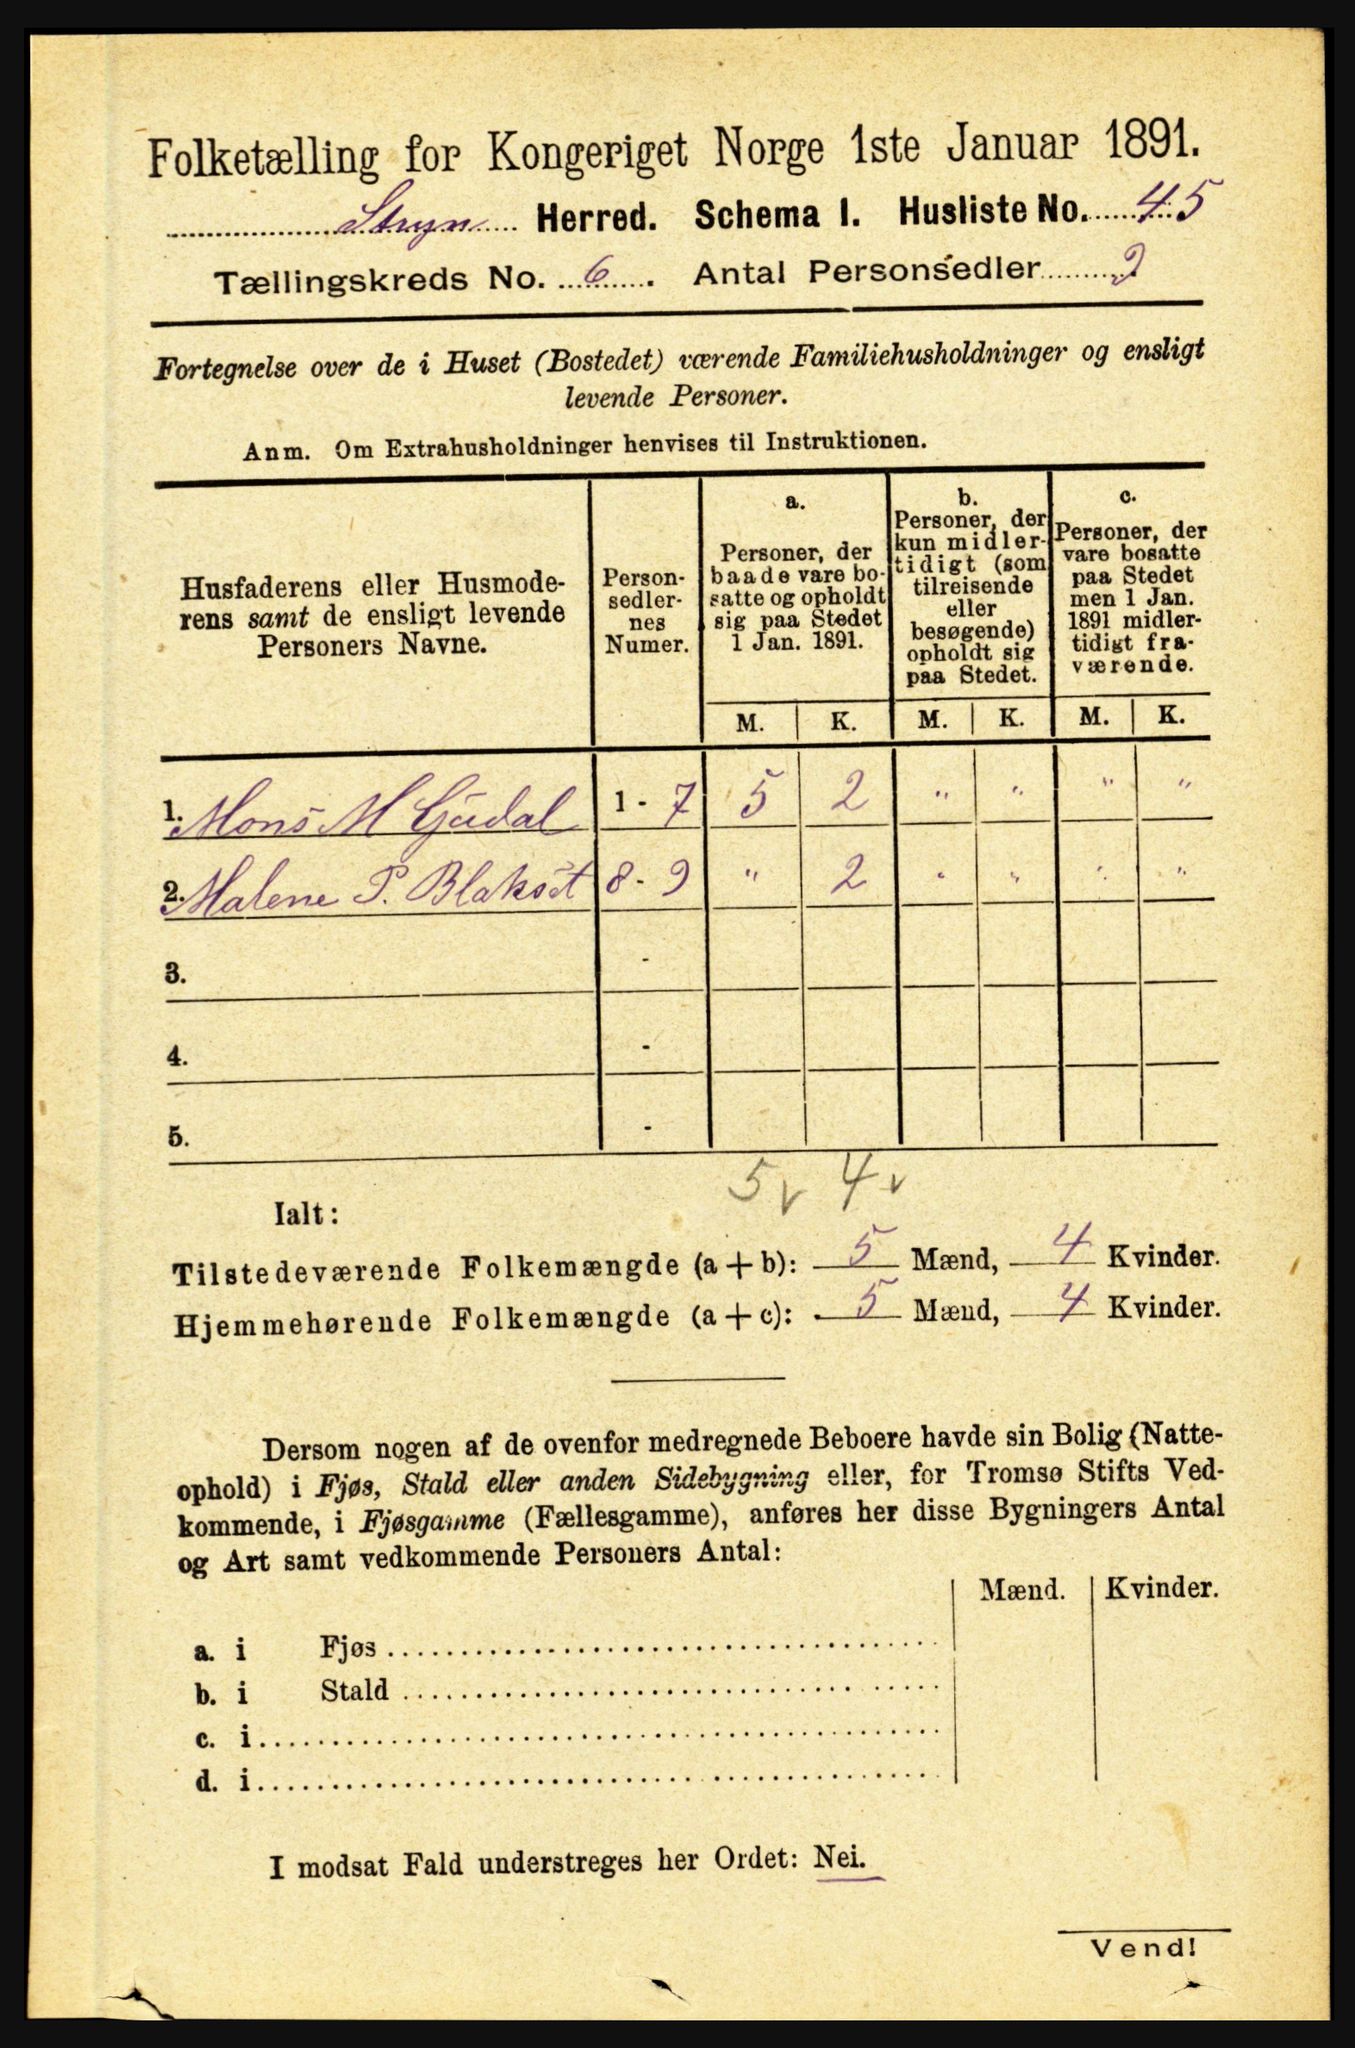 Folketælling for Kongeriget Norge 1ste Januar 1891.
Stryn Herred. Schema I. Husliste No. 45
Tællingskreds No. 6. Antal Personsedler 9
Fortegnelse over de i Huset (Bostedet) værende Familiehusholdninger og ensligt
levende Personer.
Anm. Om Extrahusholdninger henvises til Instruktionen.
Husfaderens eller Husmode-
rens samt de ensligt levende
Personers Navne.
Person-
sedler-
nes
Numer.
a.
Personer, der
baade vare bo-
satte og opholdt
sig paa Stedet
1 Jan. 1891.
b.
Personer, der
kun midler-
tidigt (som
tilreisende
eller
besøgende)
opholdt sig
paa Stedet.
c.
Personer, der
vare bosatte
paa Stedet
men 1 Jan.
1891 midler-
tidigt fra-
værende.
M. K. M. K. M. K.
1. Mons M Gjidal 1 - 7 5 2 " " " "
2. Malene P. Blaksæt 8 - 9 " 2 " " " "
3. -
4. -
5. -
5 v 4 v
Ialt:
Tilstedeværende Folkemængde (a + b): 5 Mænd, 4 Kvinder.
Hjemmehørende Folkemængde (a + c): 5 Mænd, 4 Kvinder.
Dersom nogen af de ovenfor medregnede Beboere havde sin Bolig (Natte-
ophold) i Fjøs, Stald eller anden Sidebygning eller, for Tromsø Stifts Ved-
kommende, i Fjøsgamme (Fællesgamme), anføres her disse Bygningers Antal
og Art samt vedkommende Personers Antal:
Mænd. Kvinder.
a. i Fjøs
b. i Stald
c. i
d. i
I modsat Fald understreges her Ordet: Nei.
Vend!